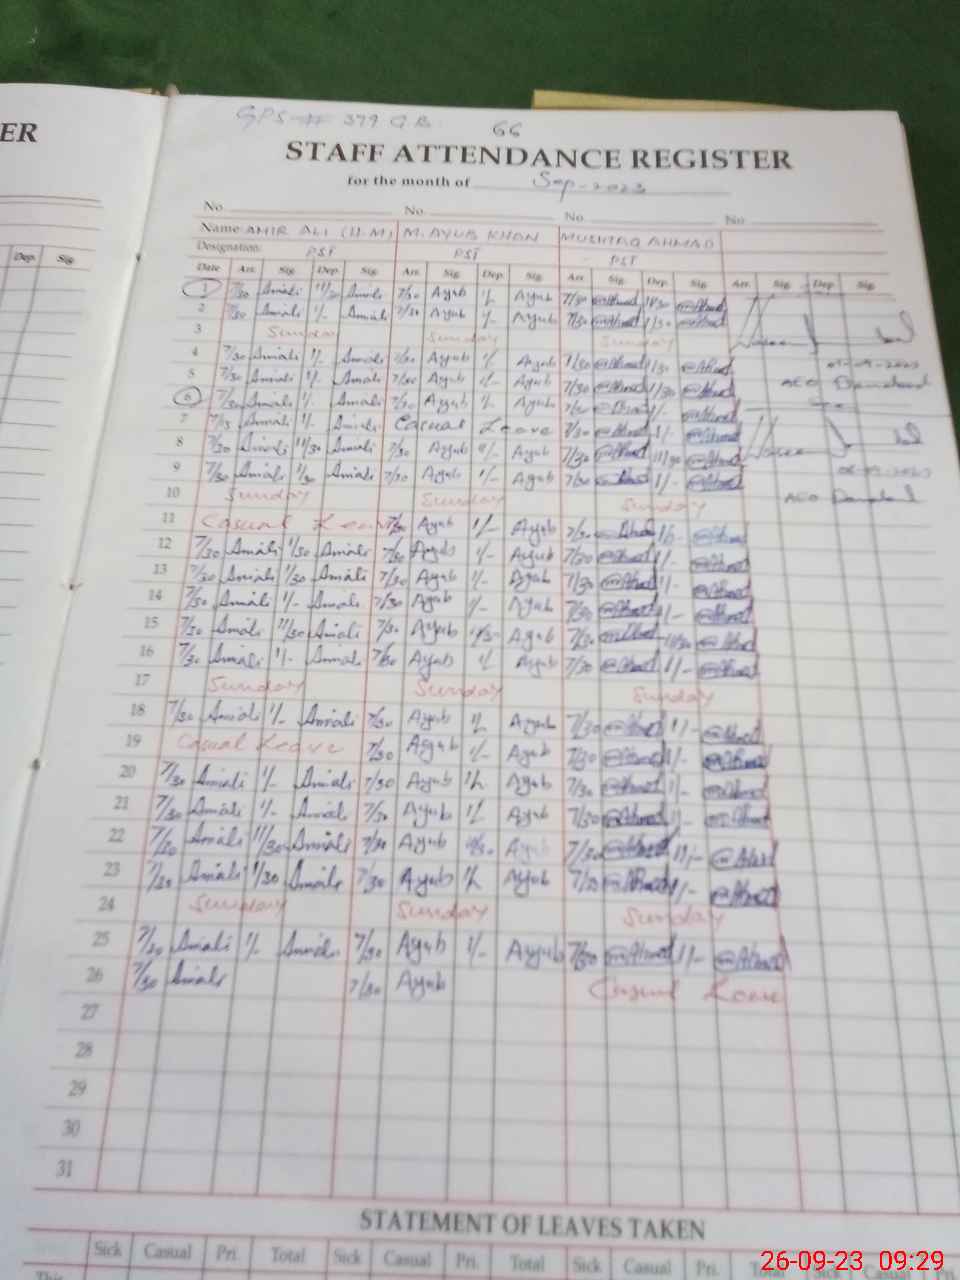 GPS # 379 G.B. 66
ER
STAFF ATTENDANCE REGISTER
for the month of Sep-2023
No. No. No. No.
Name AMIR ALI (H.M) M. AYUB KHAN MUSHTAQ AHMAD
Designation PST PST PST
Dep. Sig
Date Arr. Sig. Dep. Sig. Arr. Sig. Dep. Sig. Arr. Sig. Dep. Sig. Arr. Sig. Dep. Sig.
1 7/30 Amali 11/30 Amali 7/30 Ayub Ayub 7/30 @Ahmad 11/30 @Ahmad
2 7/30 Amali 1/- Amali 7/30 Ayub 1/- Ayub 7/30 @Ahmad 1/30 @Ahmad
3 Sunday Sunday Sunday
4 7/30 Amali 1/- Amali 7/30 Ayub 1/- Ayub 7/30 @Ahmad 1/30 @Ahmad
5 7/30 Amali 1/- Amali 7/30 Ayub 1/- Ayub 7/30 @Ahmad 1/30 @Ahmad AEO
6 7/30 Amali 1/- Amali 7/30 Ayub 1/- Ayub @Ahmad 1/- @Ahmad
7 7/15 Amali 1/- Amali Casual Leave 7/30 @Ahmad 1/- @Ahmad
8 7/30 Amali 11/30 Amali 7/30 Ayub Ayub 7/30 @Ahmad 11/30 @Ahmad
9 7/30 Amali 1/30 Amali 7/30 Ayub 1/- Ayub 7/30 1/- @Ahmad
10 Sunday Sunday Sunday AEO
11 Casual Leave 7/30 Ayub 1/- Ayub 7/30 @Ahmad 1/- @Ahmad
12 7/30 Amali 1/30 Amali 7/30 Ayub 1/- Ayub 7/30 @Ahmad 1/- @Ahmad
13 7/30 Amali 1/30 Amali 7/30 Ayub 1/- Ayub 7/30 @Ahmad 1/- @Ahmad
14 7/30 Amali 1/- Amali 7/30 Ayub 1/- Ayub 7/30 @Ahmad 1/- @Ahmad
15 7/30 Amali 11/30 Amali 7/30 Ayub Ayub 7/30 @Ahmad 11/30 @Ahmad
16 7/30 Amali 1/- Amali 7/30 Ayub Ayub 7/30 @Ahmad 1/- @Ahmad
17 Sunday Sunday Sunday
18 7/30 Amali 1/- Amali 7/30 Ayub Ayub 7/30 @Ahmad 1/- @Ahmad
19 Casual Leave 7/30 Ayub 1/- Ayub 7/30 @Ahmad 1/- @Ahmad
20 7/30 Amali 1/- Amali 7/30 Ayub Ayub 7/30 @Ahmad 1/- @Ahmad
21 7/30 Amali 1/- Amali 7/30 Ayub Ayub 7/30 @Ahmad 1/- @Ahmad
22 7/30 Amali 11/30 Amali 7/30 Ayub Ayub 7/30 @Ahmad 11/- @Ahmad
23 7/30 Amali 1/30 Amali 7/30 Ayub Ayub 7/30 @Ahmad 1/- @Ahmad
24 Sunday Sunday Sunday
25 7/30 Amali 1/- Amali 7/30 Ayub 1/- Ayub 7/30 @Ahmad 1/- @Ahmad
26 7/30 Amali 7/30 Ayub Casual Leave
27
28
29
30
31
STATEMENT OF LEAVES TAKEN
Sick Casual Pri. Total Sick Casual Pri. Total Sick Casual Pri. Total Sick Casual Pri.
This
26-09-23 09:29